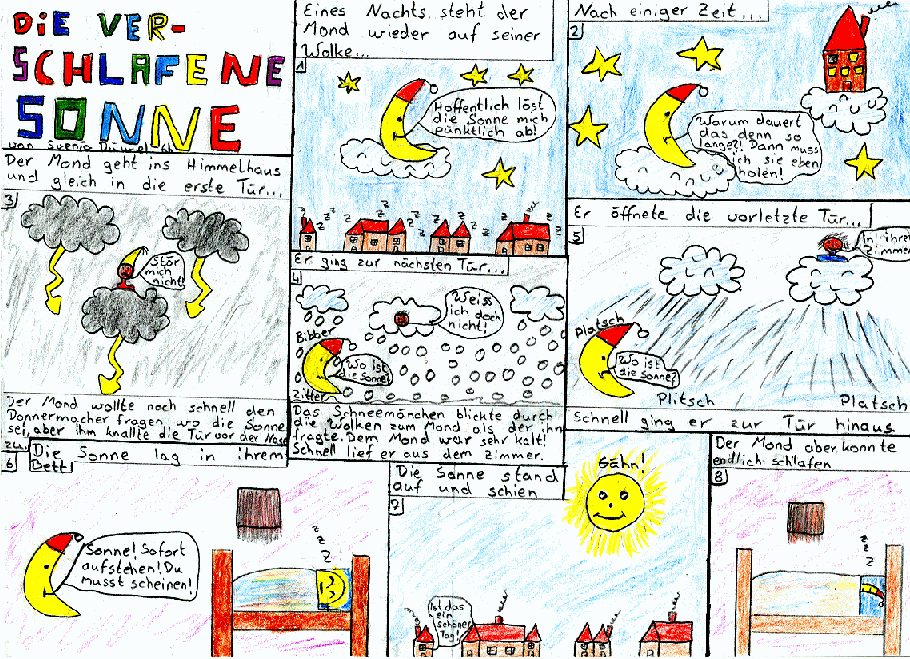 DIE VER-
SCHLAFENE
SONNE
von Svenja
Eines Nachts steht der
Mond wieder auf seiner
Wolke...
1
Hoffentlich löst
die Sonne mich
pünktlich ab!
z z z z z z z z
Nach einiger Zeit...
2
Warum dauert
das denn so
lange?! Dann muss
ich sie eben
holen!
Der Mond geht ins Himmelhaus
und gleich in die erste Tür...
3
Stör
mich
nicht!
Der Mond wollte noch schnell den
Donnermacher fragen, wo die Sonne
sei, aber ihm knallte die Tür vor der Nase
zu.
Er ging zur nächsten Tür...
4
Weiss
ich doch
nicht!
Bibber
Wo ist
die Sonne?
Zitter
Das Schneemänchen blickte durch
die Wolken zum Mond als der ihn
fragte. Dem Mond war sehr kalt!
Schnell lief er aus dem Zimmer.
Er öffnete die vorletzte Tür...
5
In ihrem
Zimmer
Platsch
Wo ist
die Sonne?
Plitsch
Platsch
Schnell ging er zur Tür hinaus
6
Die Sonne lag in ihrem
Bett!
Sonne! Sofort
aufstehen! Du
musst scheinen!
z
z
Z
Die Sonne stand
auf und schien
7
Gähn!
Ist das
ein
schöner
Tag!
Der Mond aber konnte
endlich schlafen
8
z
z
z